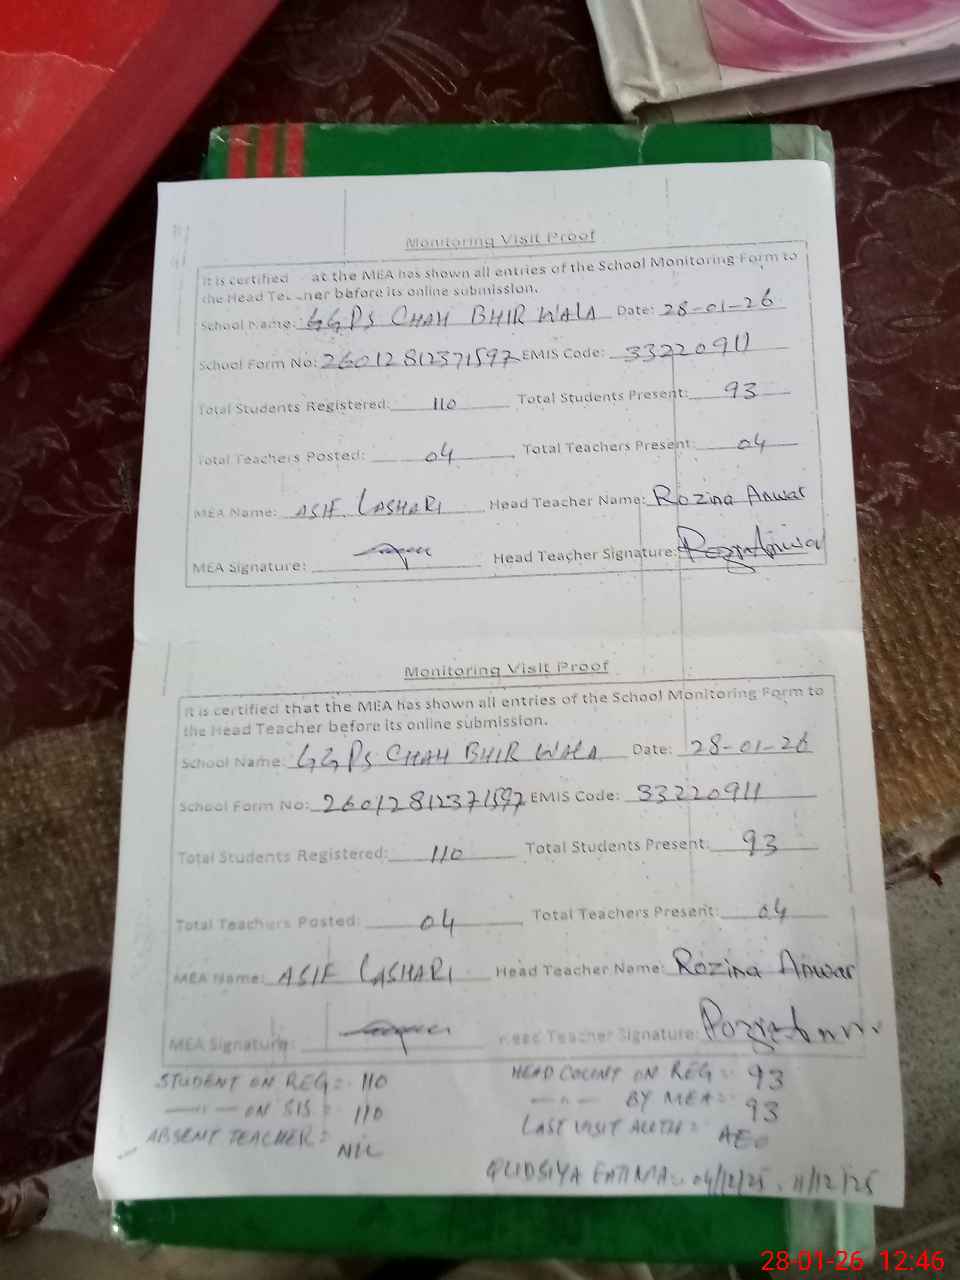 Monitoring Visit Proof
It is certified at the MEA has shown all entries of the School Monitoring Form to
the Head Teacher before its online submission.
School Name: GGPS CHAH BHIR WALA Date: 28-01-26
School Form No: 26012812371597 EMIS Code: 33220911
Total Students Registered: 110 Total Students Present: 93
Total Teachers Posted: 04 Total Teachers Present: 04
MEA Name: ASIF LASHARI Head Teacher Name: Rozina Anwar
MEA Signature: Head Teacher Signature:
Monitoring Visit Proof
It is certified that the MEA has shown all entries of the School Monitoring Form to
the Head Teacher before its online submission.
School Name: GGPS CHAH BHIR WALA Date: 28-01-26
School Form No: 26012812371597 EMIS Code: 33220911
Total Students Registered: 110 Total Students Present: 93
Total Teachers Posted: 04 Total Teachers Present: 04
MEA Name: ASIF LASHARI Head Teacher Name: Rozina Anwar
MEA Signature: Head Teacher Signature:
STUDENT ON REG = 110 HEAD COUNT ON REG = 93
— " — ON SIS = 110 — " — BY MEA = 93
ABSENT TEACHER = NIL LAST VISIT AUTH = AEO
QUDSIYA FATIMA = 04/12/25, 11/12/25
28-01-26 12:46